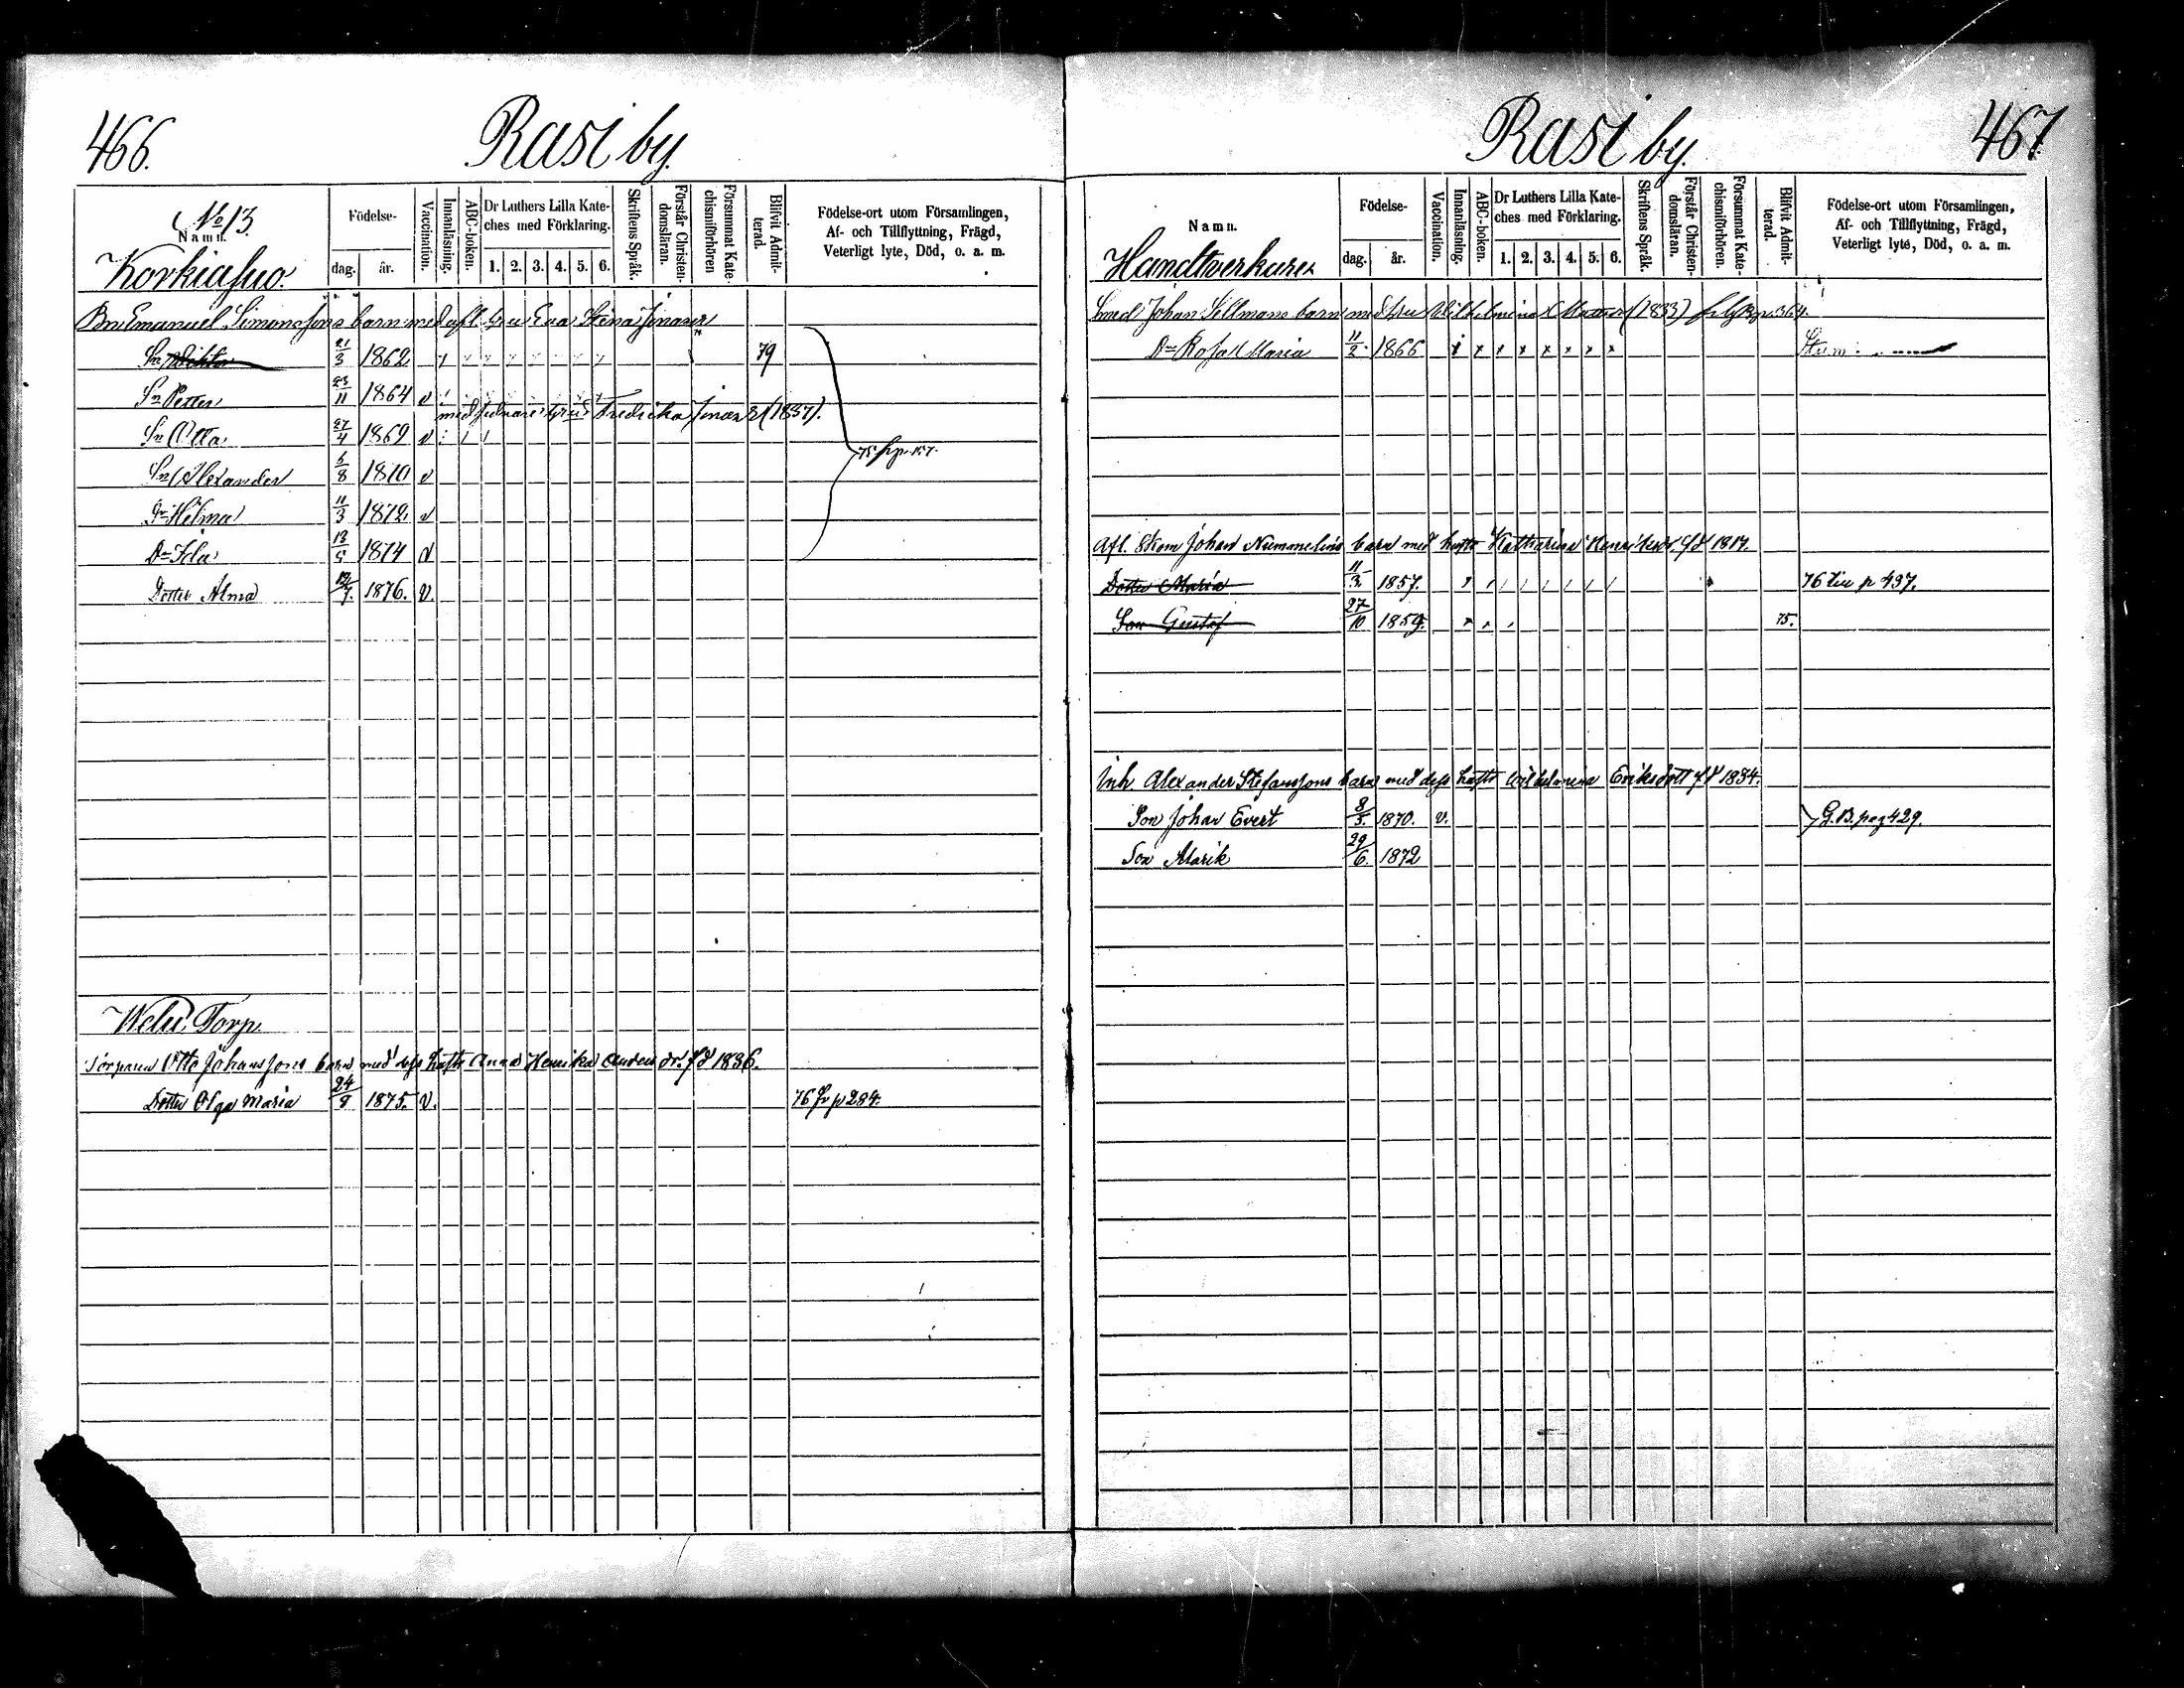 466.
Rasi by.
No 13.
Namn.
Korkiasuo.
Födelse-
dag.
år.
Vaccination.
Innanläsning.
ABC-boken.
Dr Luthers Lilla Kate-
ches med Förklaring.
1. 2. 3. 4. 5. 6.
Skriftens Språk.
Förstår Christen-
domsläran.
Försummat Kate-
chismiförhören
Blifvit Admit-
terad.
Födelse-ort utom Församlingen,
Af- och Tillflyttning, Frägd,
Veterligt lyte, Död, o. a. m.
Bn Emanuel Simonssons barn med afl. Eva Stina
Sn 21/3 1862 79
Sn Petter 23/11 1864 v
med Fredrika (1837).
Sn Otta 27/4 1869 v
Sn Alexander 5/8 1870 v
Dr Hilma 11/3 1872 v
Dr Ida 13/5 1874 v
Dotter Alma 12/7. 1876. V.
Torp.
Otto Johanssons barn med dess hustr Anna Henrika fd 1836.
Dotter Olga Maria 24/8 1875. V. 76 p 284.
Rasi by.
467
Namn.
Handtverkare
Födelse-
dag.
år.
Vaccination.
Innanläsning.
ABC-boken.
Dr Luthers Lilla Kate-
ches med Förklaring.
1. 2. 3. 4. 5. 6.
Skriftens Språk.
Förstår Christen-
domsläran.
Försummat Kate-
chismiförhören.
Blifvit Admit-
terad.
Födelse-ort utom Församlingen,
Af- och Tillflyttning, Frägd,
Veterligt lyte, Död, o. a. m.
Smed Johan Sellmans barn med Vilhelmina (1833) p. 364.
Dr Rosa Maria 11/2 1866 x x x x x x x x
Afl. Skom Johan Nummelins barn med hustr Katharina fd 1817.
Dotter Maria 11/3. 1857. 76 p 437.
Son Gustaf 27/10 1859. 75.
Inh. Alexander Stefanssons barn med dess hustr Wilhelmina Eriksdott fd 1834.
Son Johan Evert 8/5. 1870. v. G.B. pag 429.
Son Marik 29/6. 1872